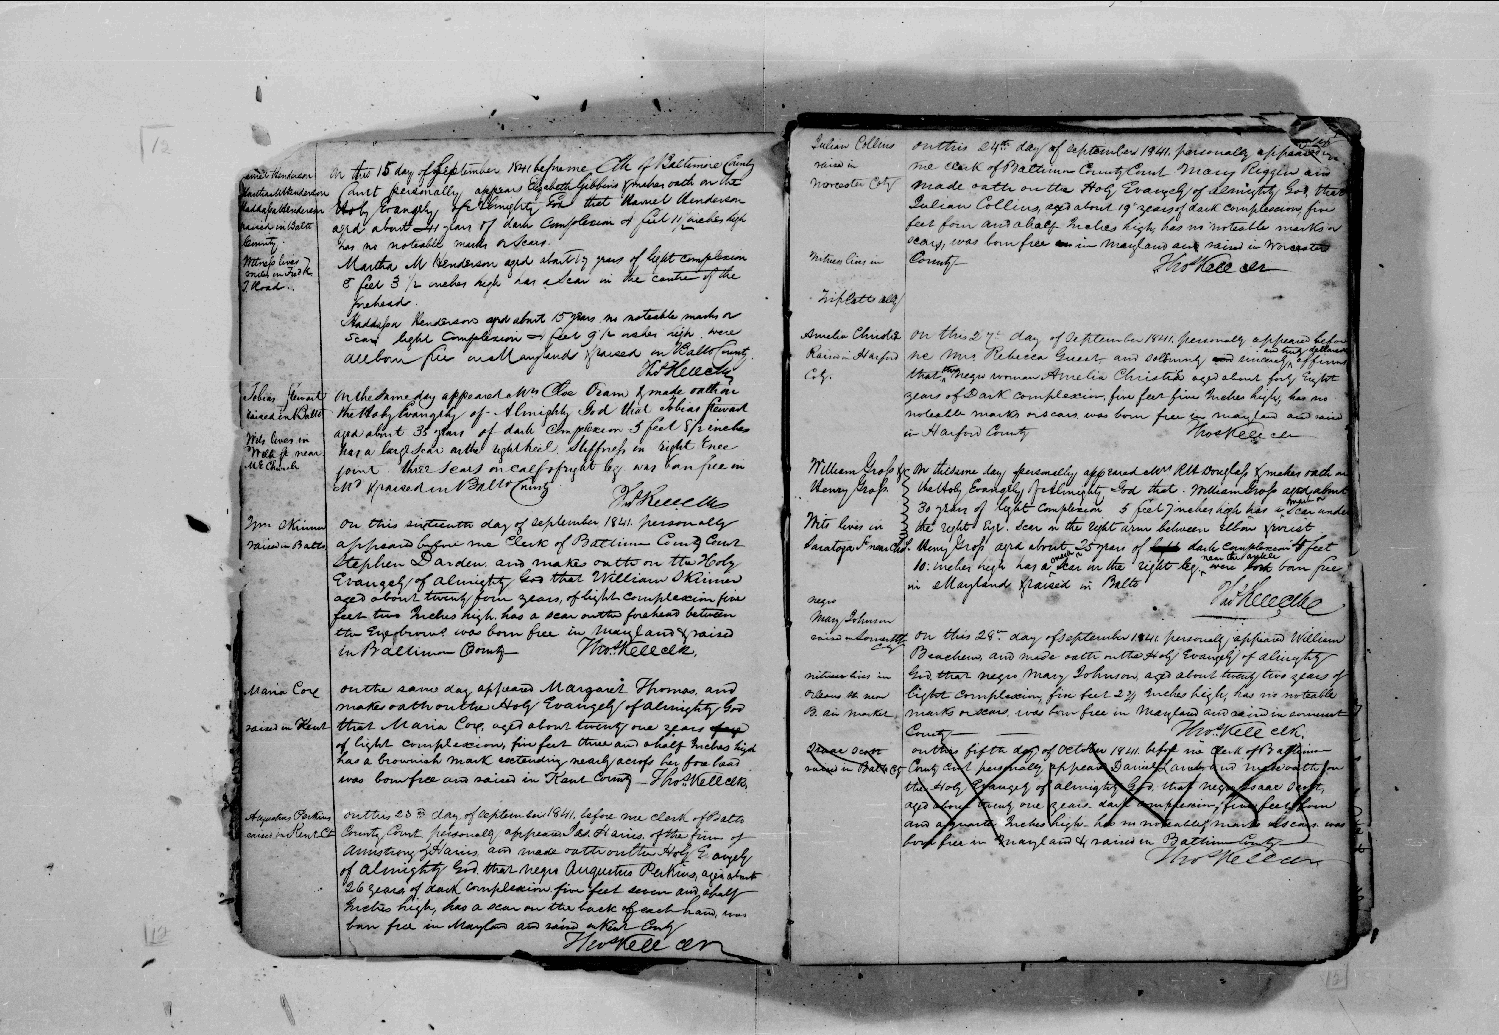 Harriet Henderson
Martha M Henderson
Haddassa Henderson
raised in Balto
County.
Witness lives 7
miles in Fredk
T. Road.
On this 15 day of September 1841 before me Clk of Baltimore County
Court personally appear Elizabeth Gibbins & makes oath on the
Holy Evangely of Almighty God that Harriet Henderson
aged about 41 years of dark Complexion 4 feet 11 1/2 inches high
has no noteable marks or scars.
Martha M Henderson aged about 17 years of light complexion
5 feet 3 1/2 inches high has a scar in the centre of the
forehead.
Haddassa Henderson aged about 15 years no noteable marks or
scars light Complexion 4 feet 9 1/2 inches high were
all born free in Maryland & raised in Balto County.
Thos Kell clk
Tobias Stewart
raised in Balto
Wits lives in
near
M.E. Church
On the same day appeared Mrs Cloe Deam & made oath on
the Holy Evangely of Almighty God that Tobias Stewart
aged about 35 years of dark Complexion 5 feet 8 1/2 inches
has a large scar on the right heel, stiffness in right knee
joint three scars on calf of right leg was born free in
Md & raised in Balto County
Thos Kell clk
Wm Skinner
raised in Balto
On this sixteenth day of September 1841. personally
appeared before me Clerk of Baltimore County Court
Stephen Darden, and makes oath on the Holy
Evangely of almighty God that William Skinner
aged about twenty four years, of light complexion five
feet two Inches high. has a scar on the forehead between
the Eyebrows. was born free in Maryland & raised
in Baltimore County Thos. Kell clk.
Maria Cox
raised in Kent
on the same day appeared Margaret Thomas, and
makes oath on the Holy Evangely of Almighty God
that Maria Cox, aged about twenty one years
of light complexion, five feet three and a half Inches high
has a brownish mark extending nearly across her fore head
was born free and raised in Kent County — Thos. Kell clk.
Augustus Perkins
raised in Kent Ct
on this 23rd day of September 1841. before me clerk of Balto
County Court personally appeared Jas Harris, of the firm of
Armstrong & Harris, and made oath on the Holy Evangely
of almighty God. that negro Augustus Perkins, aged about
26 years of dark complexion five feet seven and a half
Inches high, has a scar on the back of each hand, was
born free in Maryland and raised in Kent Conty
Thos Kell clk
Julian Collins
raised in
Worcester Coty
Witness lives in
Triplett ally
on this 24th day of september 1841. personally appeared before
me clerk of Baltimore County Court Mary Riggin and
made oath on the Holy Evangely of almighty God, that
Julian Collins, aged about 19 years of dark complexion, five
feet four and a half Inches high, has no noteable marks or
scars, was born free in Maryland and raised in Worcester
County Thos Kell clk
Amelia Christie
Raised in Harford
Coty.
on this 27th day of September 1841. personally appeared before
me Mrs Rebecca Guest and solemnly and sincerely and truly declared affirms
that the negro woman Amelia Christie aged about forty Eight
years of Dark complexion, five feet five Inches high, has no
noteable marks or scars, was born free in maryland and raised
in Harford County Thos Kell clk
William Gross &
Henry Gross.
Wits lives in
Saratoga St near Chs St.
On the same day personally appeared Mrs RM Douglass & makes oath on
the Holy Evangely of Almighty God that William Gross aged about
30 years of light Complexion 5 feet 7 inches high has a scar under
the right Eye. scar on the right arm between elbow & wrist
Henry Gross aged about 25 years of dark complexion 5 feet
10 inches high has a scar on the right leg near the ankle were born free
in Maryland & raised in Balto
Thos Kell clk
negro
Mary Johnson
raised in Somerset
Coty
witness lives in
Orleans St near
B. air market
on this 28th day of September 1841. personaly appeared William
Beacham, and made oath on the Holy Evangely of almighty
God that negro Mary Johnson, aged about twenty two years of
light complexion, five feet 2 1/2 Inches high, has no noteable
marks or scars, was born free in Maryland and raised in somerset
County — — Thos. Kell clk.
Isaac Scott
raised in Balto Cy
on this fifth day of October 1841. before me clerk of Baltimore
County Court personaly appeared Daniel and made oath on
the Holy Evangely of almighty God, that negro Isaac Scott,
aged about twenty one years. dark complexion, five feet four
and a quarter Inches high. has no noteable marks or scars. was
born free in Maryland & raised in Baltimore County
Thos Kell clk